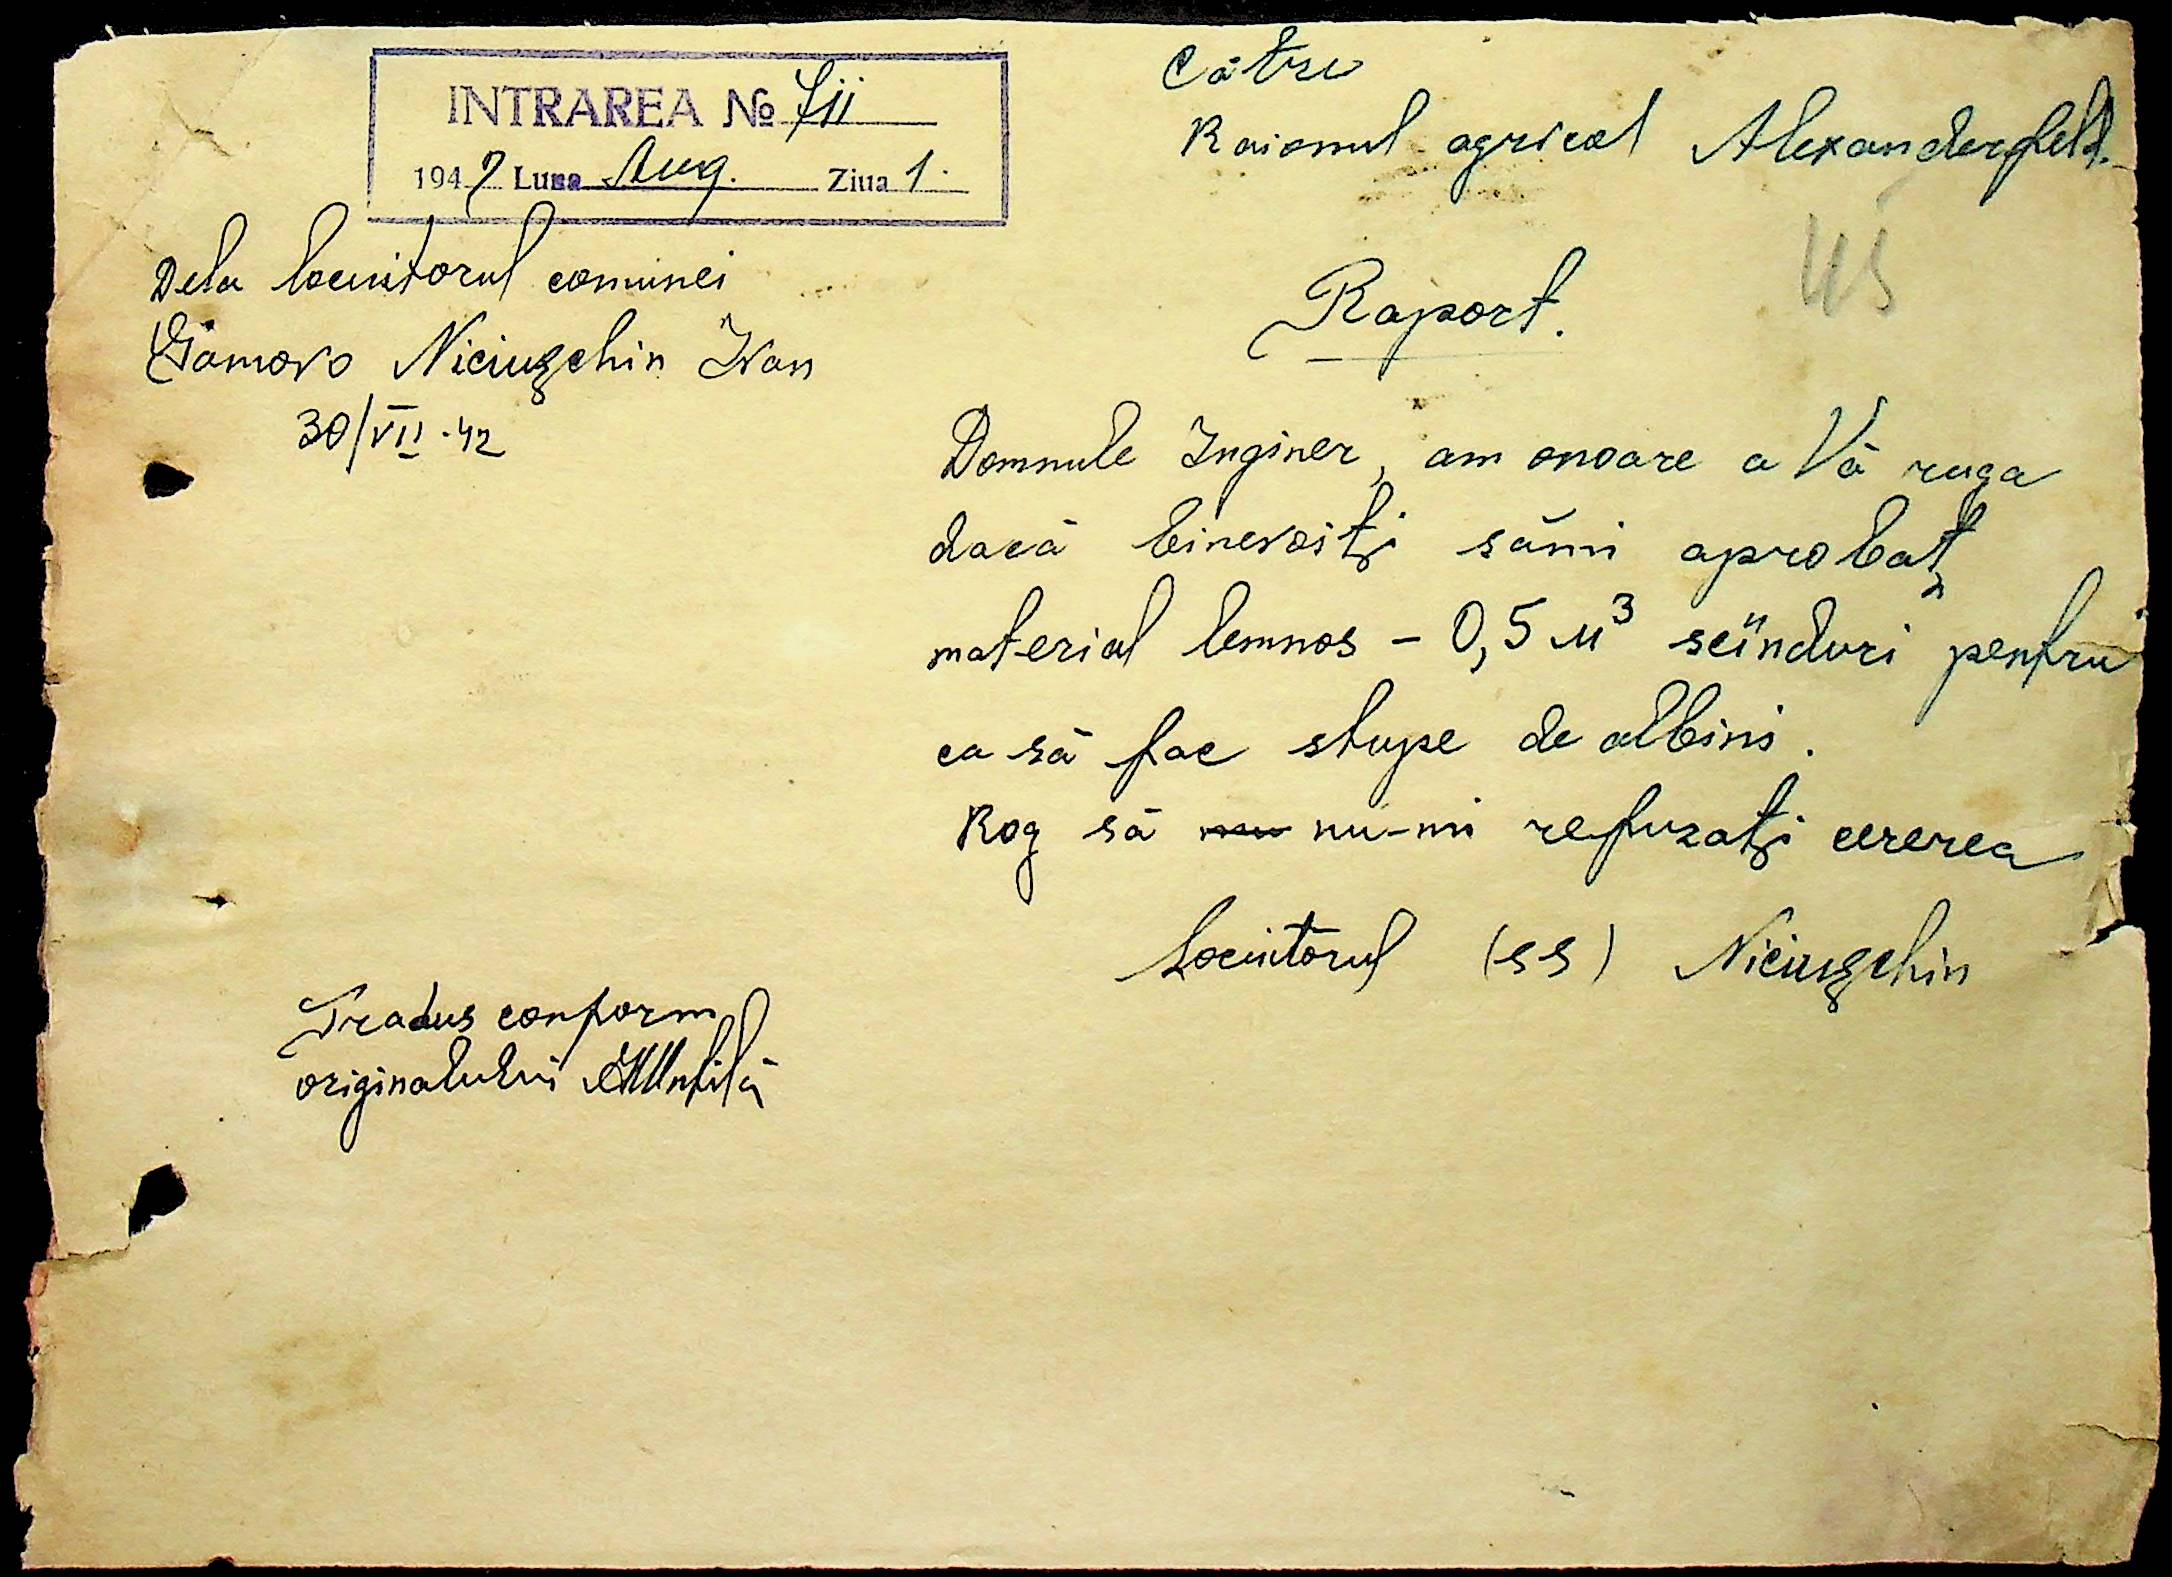 INTRAREA No 711
1942 Luna Aug. Ziua 1.
Către
Raionul agricol Alexanderfeld.
Dela locuitorul comunei
Gamovo Niciugchin Ivan
30/VII.42
Raport.
Domnule Inginer, am onoare a Vă ruga
dacă binevoiți sămi aprobaț
material lemnos – 0,5 M³ scînduri pentru
ca să fac stupe de albini.
Rog să nu-mi refuzați cererea
Locuitorul (ss) Niciugchin
Tradus conform
originalului